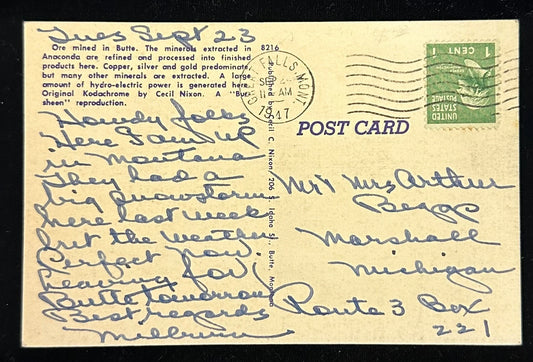 Tues Sept 23
Ore mined in Butte. The minerals extracted in
Anaconda are refined and processed into finished
products here. Copper, silver and gold predominate,
but many other minerals are extracted. A large
amount of hydro-electric power is generated here.
Original Kodachrome by Cecil Nixon. A
sheen" reproduction.
8216
Howdy folks
Here I am up
in Montana
They had a
big snowstorm
here last week
but the weather
Perfect now.
Leaving for
Butte tomorrow
Best regards
Published by Cecil C. Nixon, 206 S. Idaho St., Butte, Montana
FALLS MONT.
AM
1947
POST CARD
1 CENT 1
UNITED
STATES
POSTAGE
Mr & Mrs Arthur
Begg
Marshall
Michigan
Route 3 Box
221